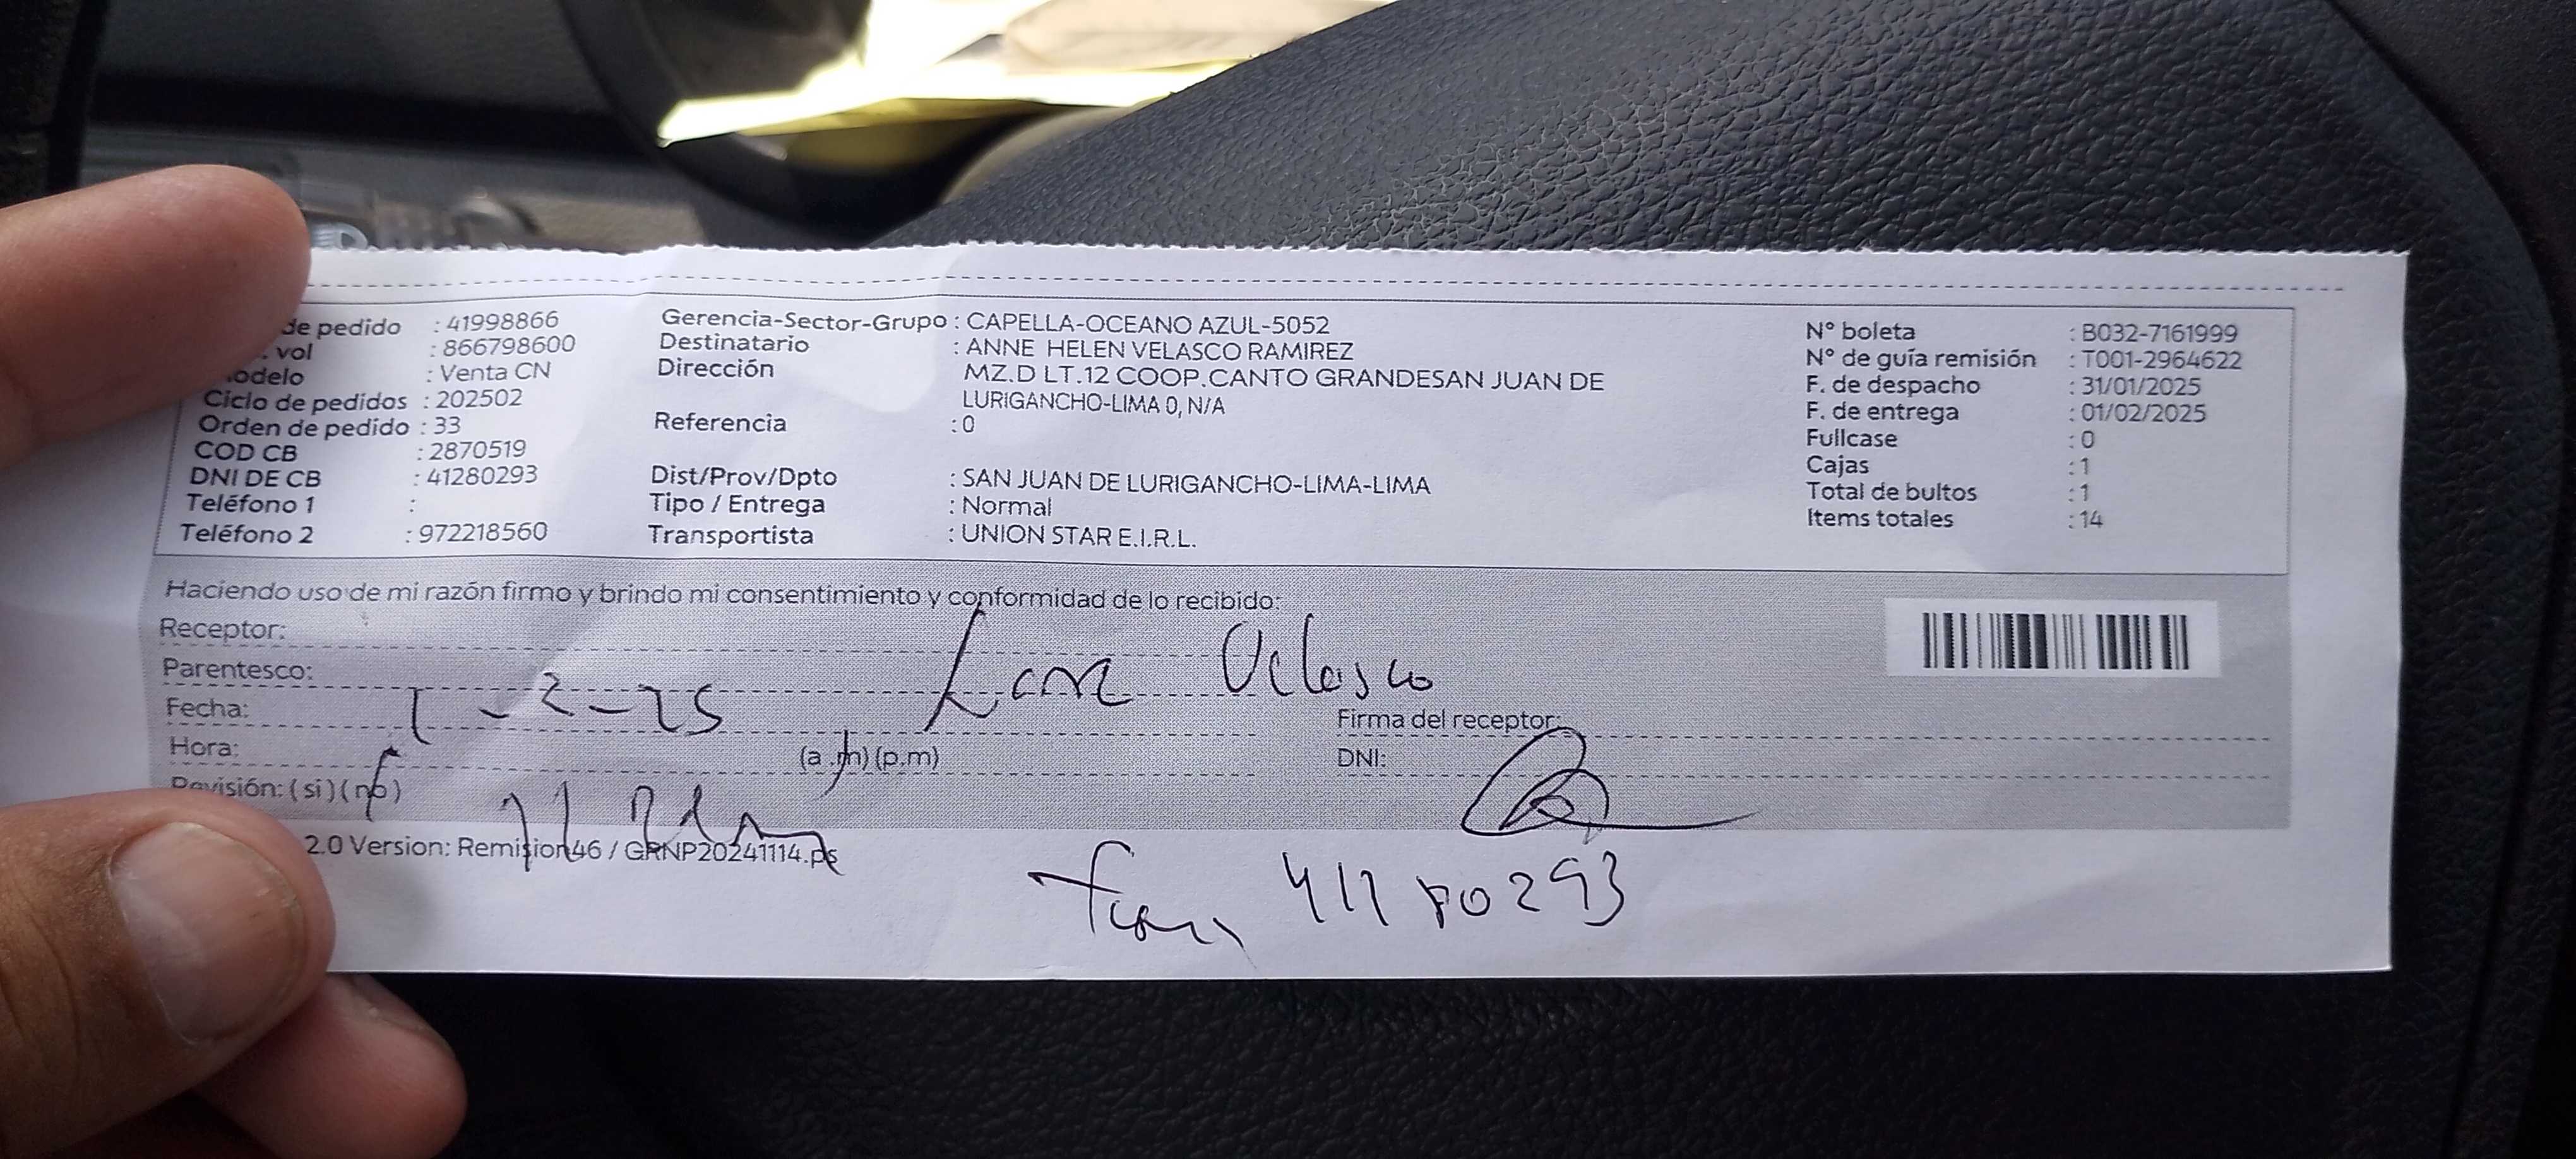 de pedido : 41998866
. vol : 866798600
odelo : Venta CN
Ciclo de pedidos : 202502
Orden de pedido : 33
COD CB : 2870519
DNI DE CB : 41280293
Teléfono 1 :
Teléfono 2 : 972218560
Gerencia-Sector-Grupo : CAPELLA-OCEANO AZUL-5052
Destinatario : ANNE HELEN VELASCO RAMIREZ
Dirección MZ.D LT.12 COOP.CANTO GRANDESAN JUAN DE
LURIGANCHO-LIMA 0, N/A
Referencia : 0
Dist/Prov/Dpto : SAN JUAN DE LURIGANCHO-LIMA-LIMA
Tipo / Entrega : Normal
Transportista : UNION STAR E.I.R.L.
N° boleta : B032-7161999
N° de guía remisión : T001-2964622
F. de despacho : 31/01/2025
F. de entrega : 01/02/2025
Fullcase : 0
Cajas : 1
Total de bultos : 1
Items totales : 14
Haciendo uso de mi razón firmo y brindo mi consentimiento y conformidad de lo recibido:
Receptor:
Velasco
Parentesco:
Fecha: 1-2-25
Firma del receptor:
Hora: (a.m) (p.m)
DNI:
Revisión: (si) (no)
2.0 Version: Remision46 / GRNP20241114.ps